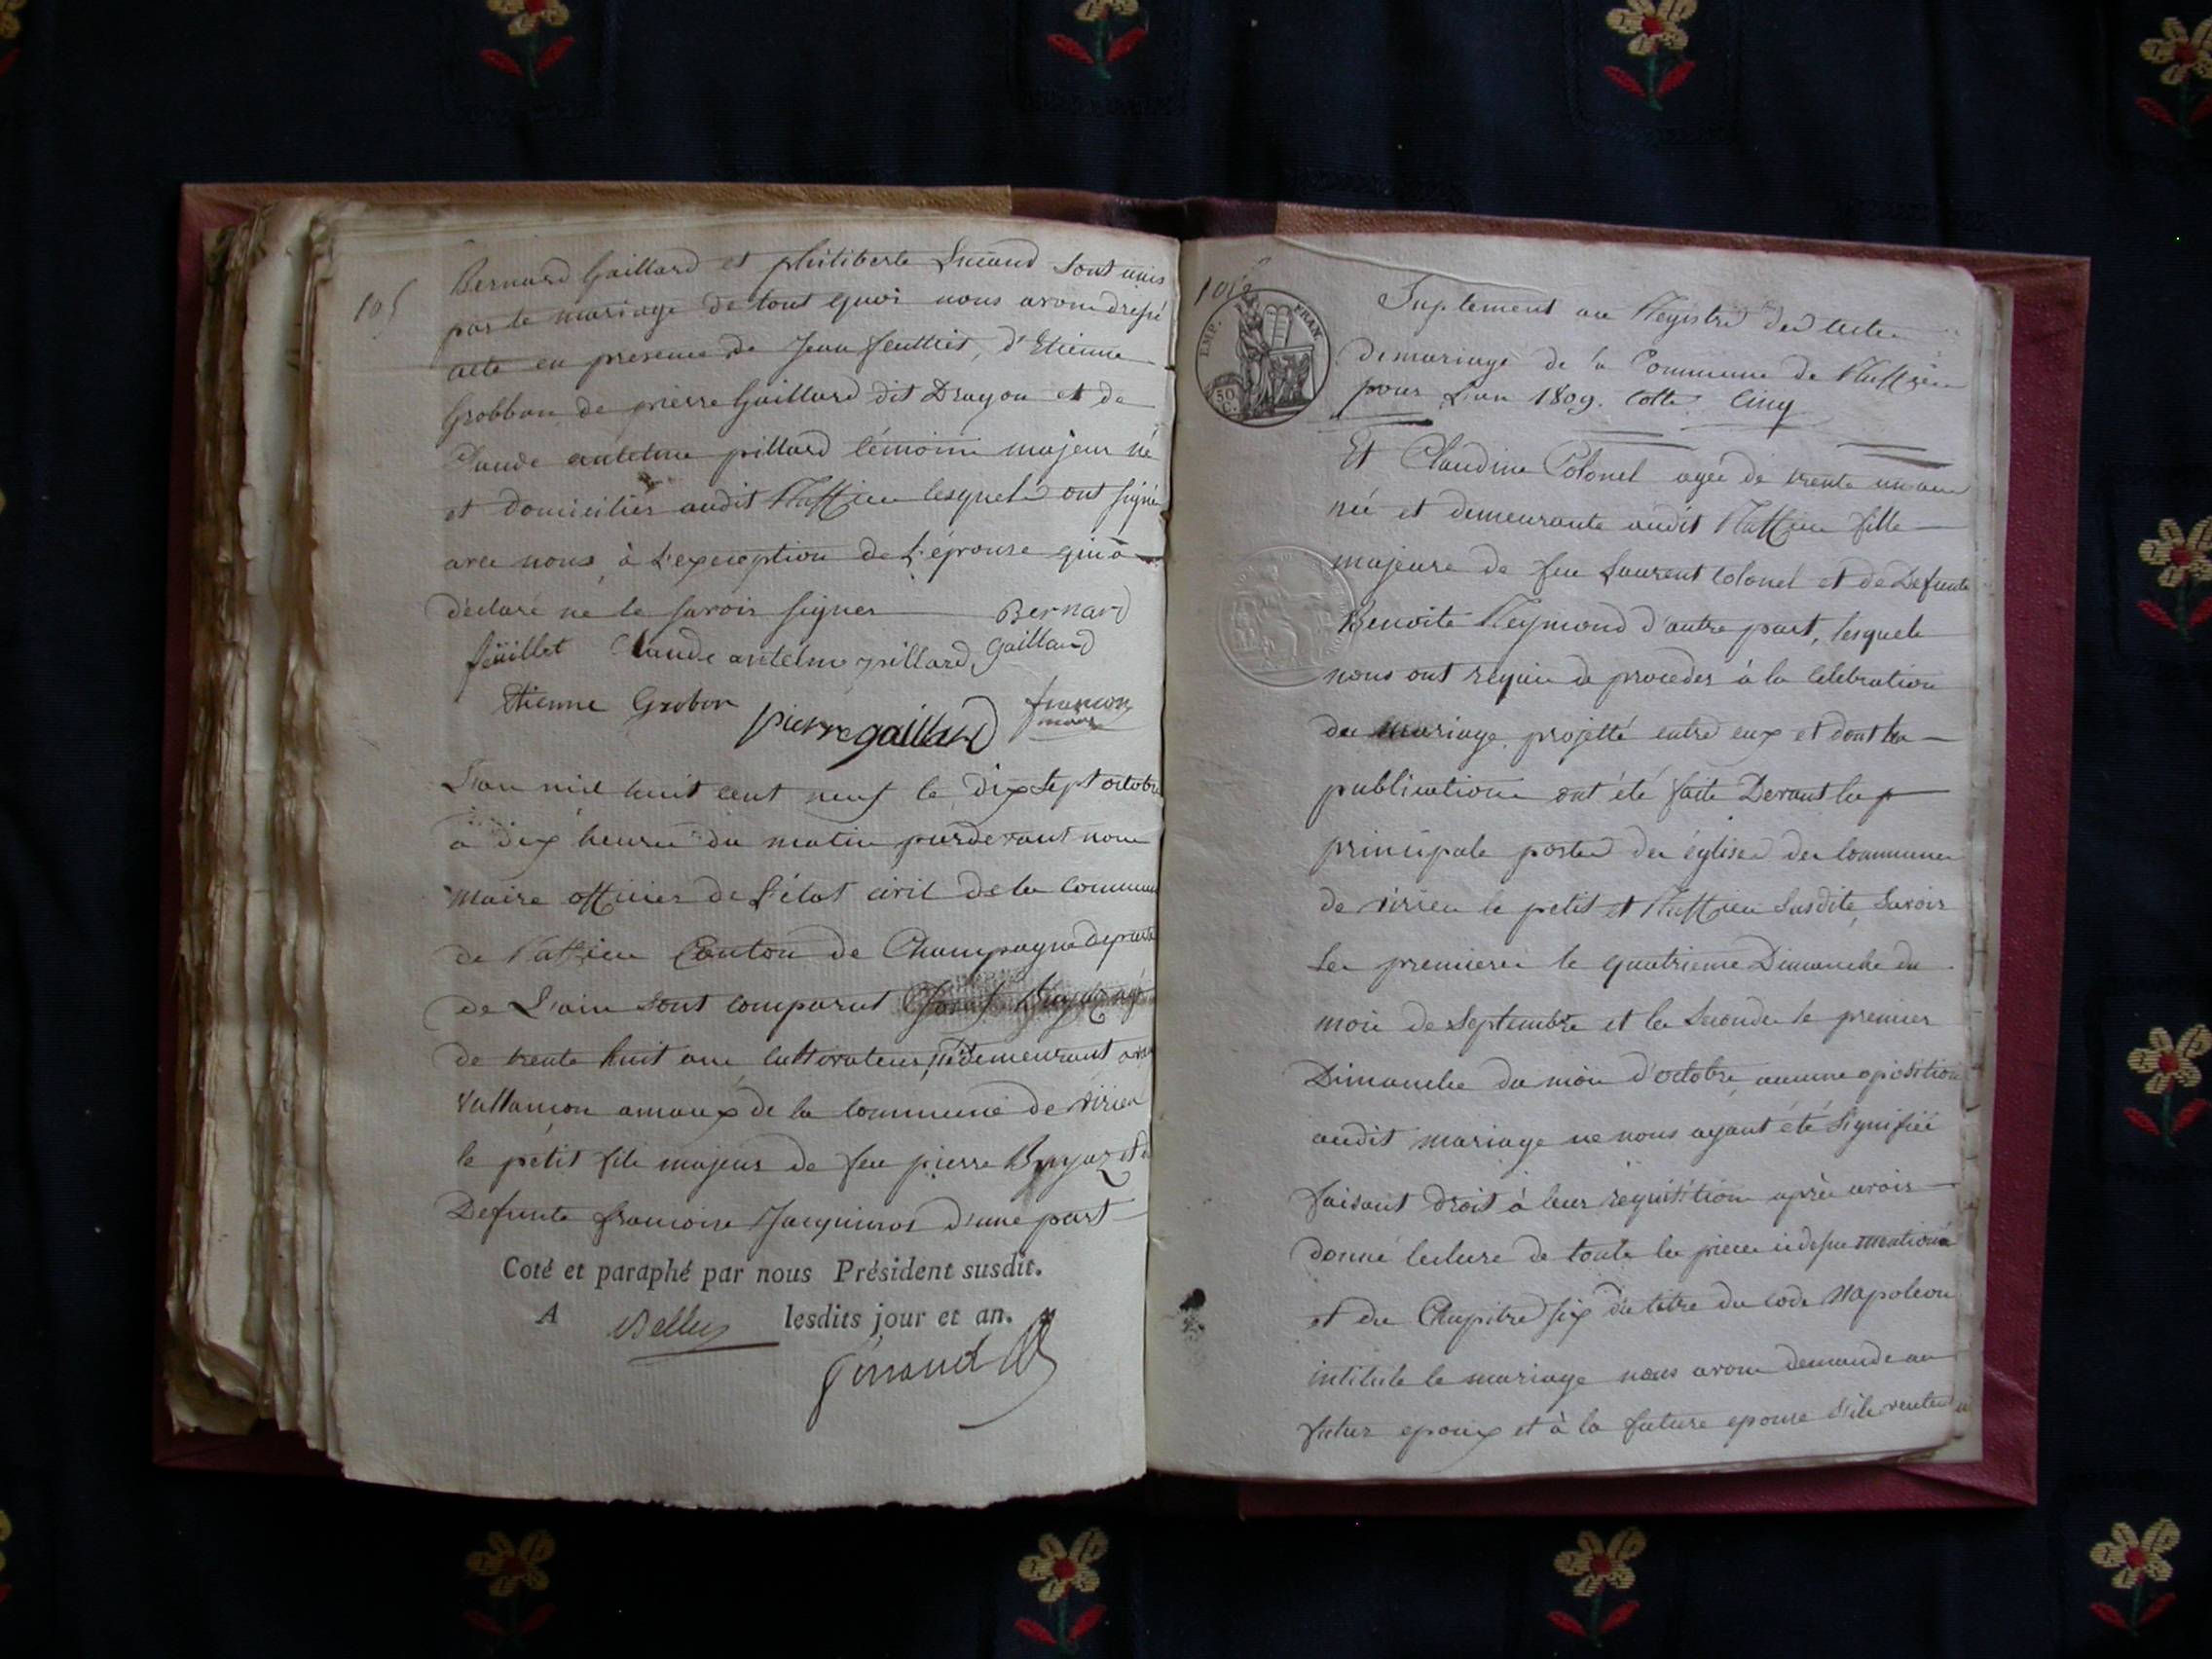 105
Bernard Gaillard et philiberte sont unis
par le mariage de tout quoi nous avons dressé
acte en presence de Jean feuillet, d'Etienne
Grobbon de pierre Gaillard dit Dragon et de
Claude antelme pillard témoins majeur né
et domiciliés audit Ruffieu lesquels ont signé
avec nous à l'exception de l'épouse qui a
déclaré ne le savoir signer Bernard
feüillet Claude antelme pillard gaillard
Etienne Grobon
pierre gaillard
françon
maire
L'an mil huit cent neuf le dix sept octobre
à dix heures du matin pardevant nous
maire officier de l'état civil de la commune
de Ruffieu Canton de Champagne departe
de L'ain sont comparut
de trente huit ans cultivateur, demeurant
amaux de la commune de virieu
le petit fils majeur de feu pierre
Defunte francoise Jacquinod d'une part
Coté et paraphé par nous Président susdit.
A Belley lesdits jour et an.
Girand
IMP. FRAN.
50 C.
Suplement au Registre des actes
de mariage de la Commune de Ruffieu
pour L'an 1809. Cotte Cinq
Et Claudine Colonel agée de trente un ans
née et demeurante audit Ruffieu fille
majeure de feu Laurent Colonel et de Defunte
Benoite Reymond d'autre part, lesquels
nous ont requis de proceder à la celebration
du mariage projetté entre eux et dont les
publications ont été faite Devant les p
principale portes des églises des Communes
de virieu le petit et Ruffieu susdite, savoir
les premieres le quatrieme Dimanche du
mois de Septembre et les secondes le premier
Dimanche du mois d'octobre aucune oposition
audit mariage ne nous ayant été signifiée
faisant droit à leur requisition après avoir
donné lecture de toute les pieces ci dessus mentionné
et du Chapitre six du titre du code Napoleon
intitule le mariage nous avons demande au
futur epoux et à la future epouse s'ils veulent